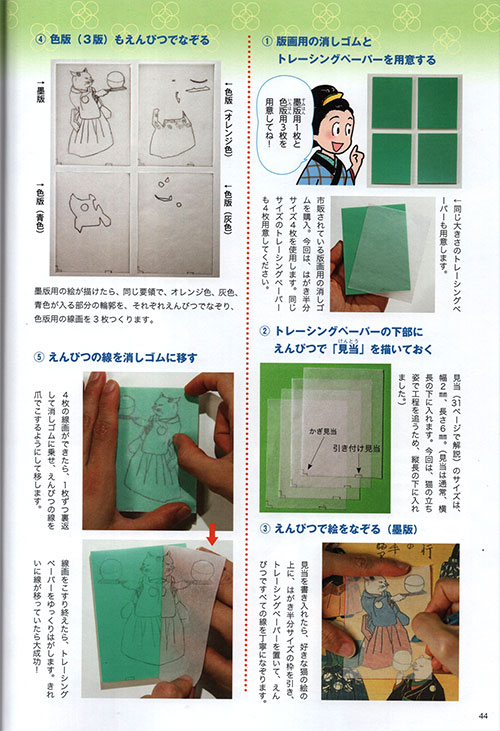 ① 版画用の消しゴムと
トレーシングペーパーを用意する
墨版用1枚と
色版用3枚を
用意してね!
すみはん
いろはん
←同じ大きさのトレーシングペ
ーパーも用意します。
市販されている版画用の消しゴ
ムを購入。今回は、はがき半分
サイズ4枚を使用します。同じ
サイズのトレーシングペーパー
も4枚用意してください。
② トレーシングペーパーの下部に
えんぴつで「見当」を描いておく
けんとう
かぎ見当
引き付け見当
見当(31ページで解説)のサイズは、
幅2㎜、長さ6㎜。(見当は通常、横
長の下に入れます。今回は、猫の立ち
姿で工程を追うため、縦長の下に入れ
ました。)
③ えんぴつで絵をなぞる(墨版)
見当を書き入れたら、好きな猫の絵の
上に、はがき半分サイズの枠を引き、
トレーシングペーパーを置いて、えん
ぴつですべての線を丁寧になぞります。
④ 色版(3版)もえんぴつでなぞる
←色版(オレンジ色)
→墨版
←色版(灰色)
→色版(青色)
墨版用の絵が描けたら、同じ要領で、オレンジ色、灰色、
青色が入る部分の輪郭を、それぞれえんぴつでなぞり、
色版用の線画を3枚つくります。
⑤ えんぴつの線を消しゴムに移す
4枚の線画ができたら、1枚ずつ裏返
して消しゴムに乗せ、えんぴつの線を
爪でこするようにして移します。
線画をこすり終えたら、トレーシング
ペーパーをゆっくりはがします。きれ
いに線が移っていたら大成功!
44